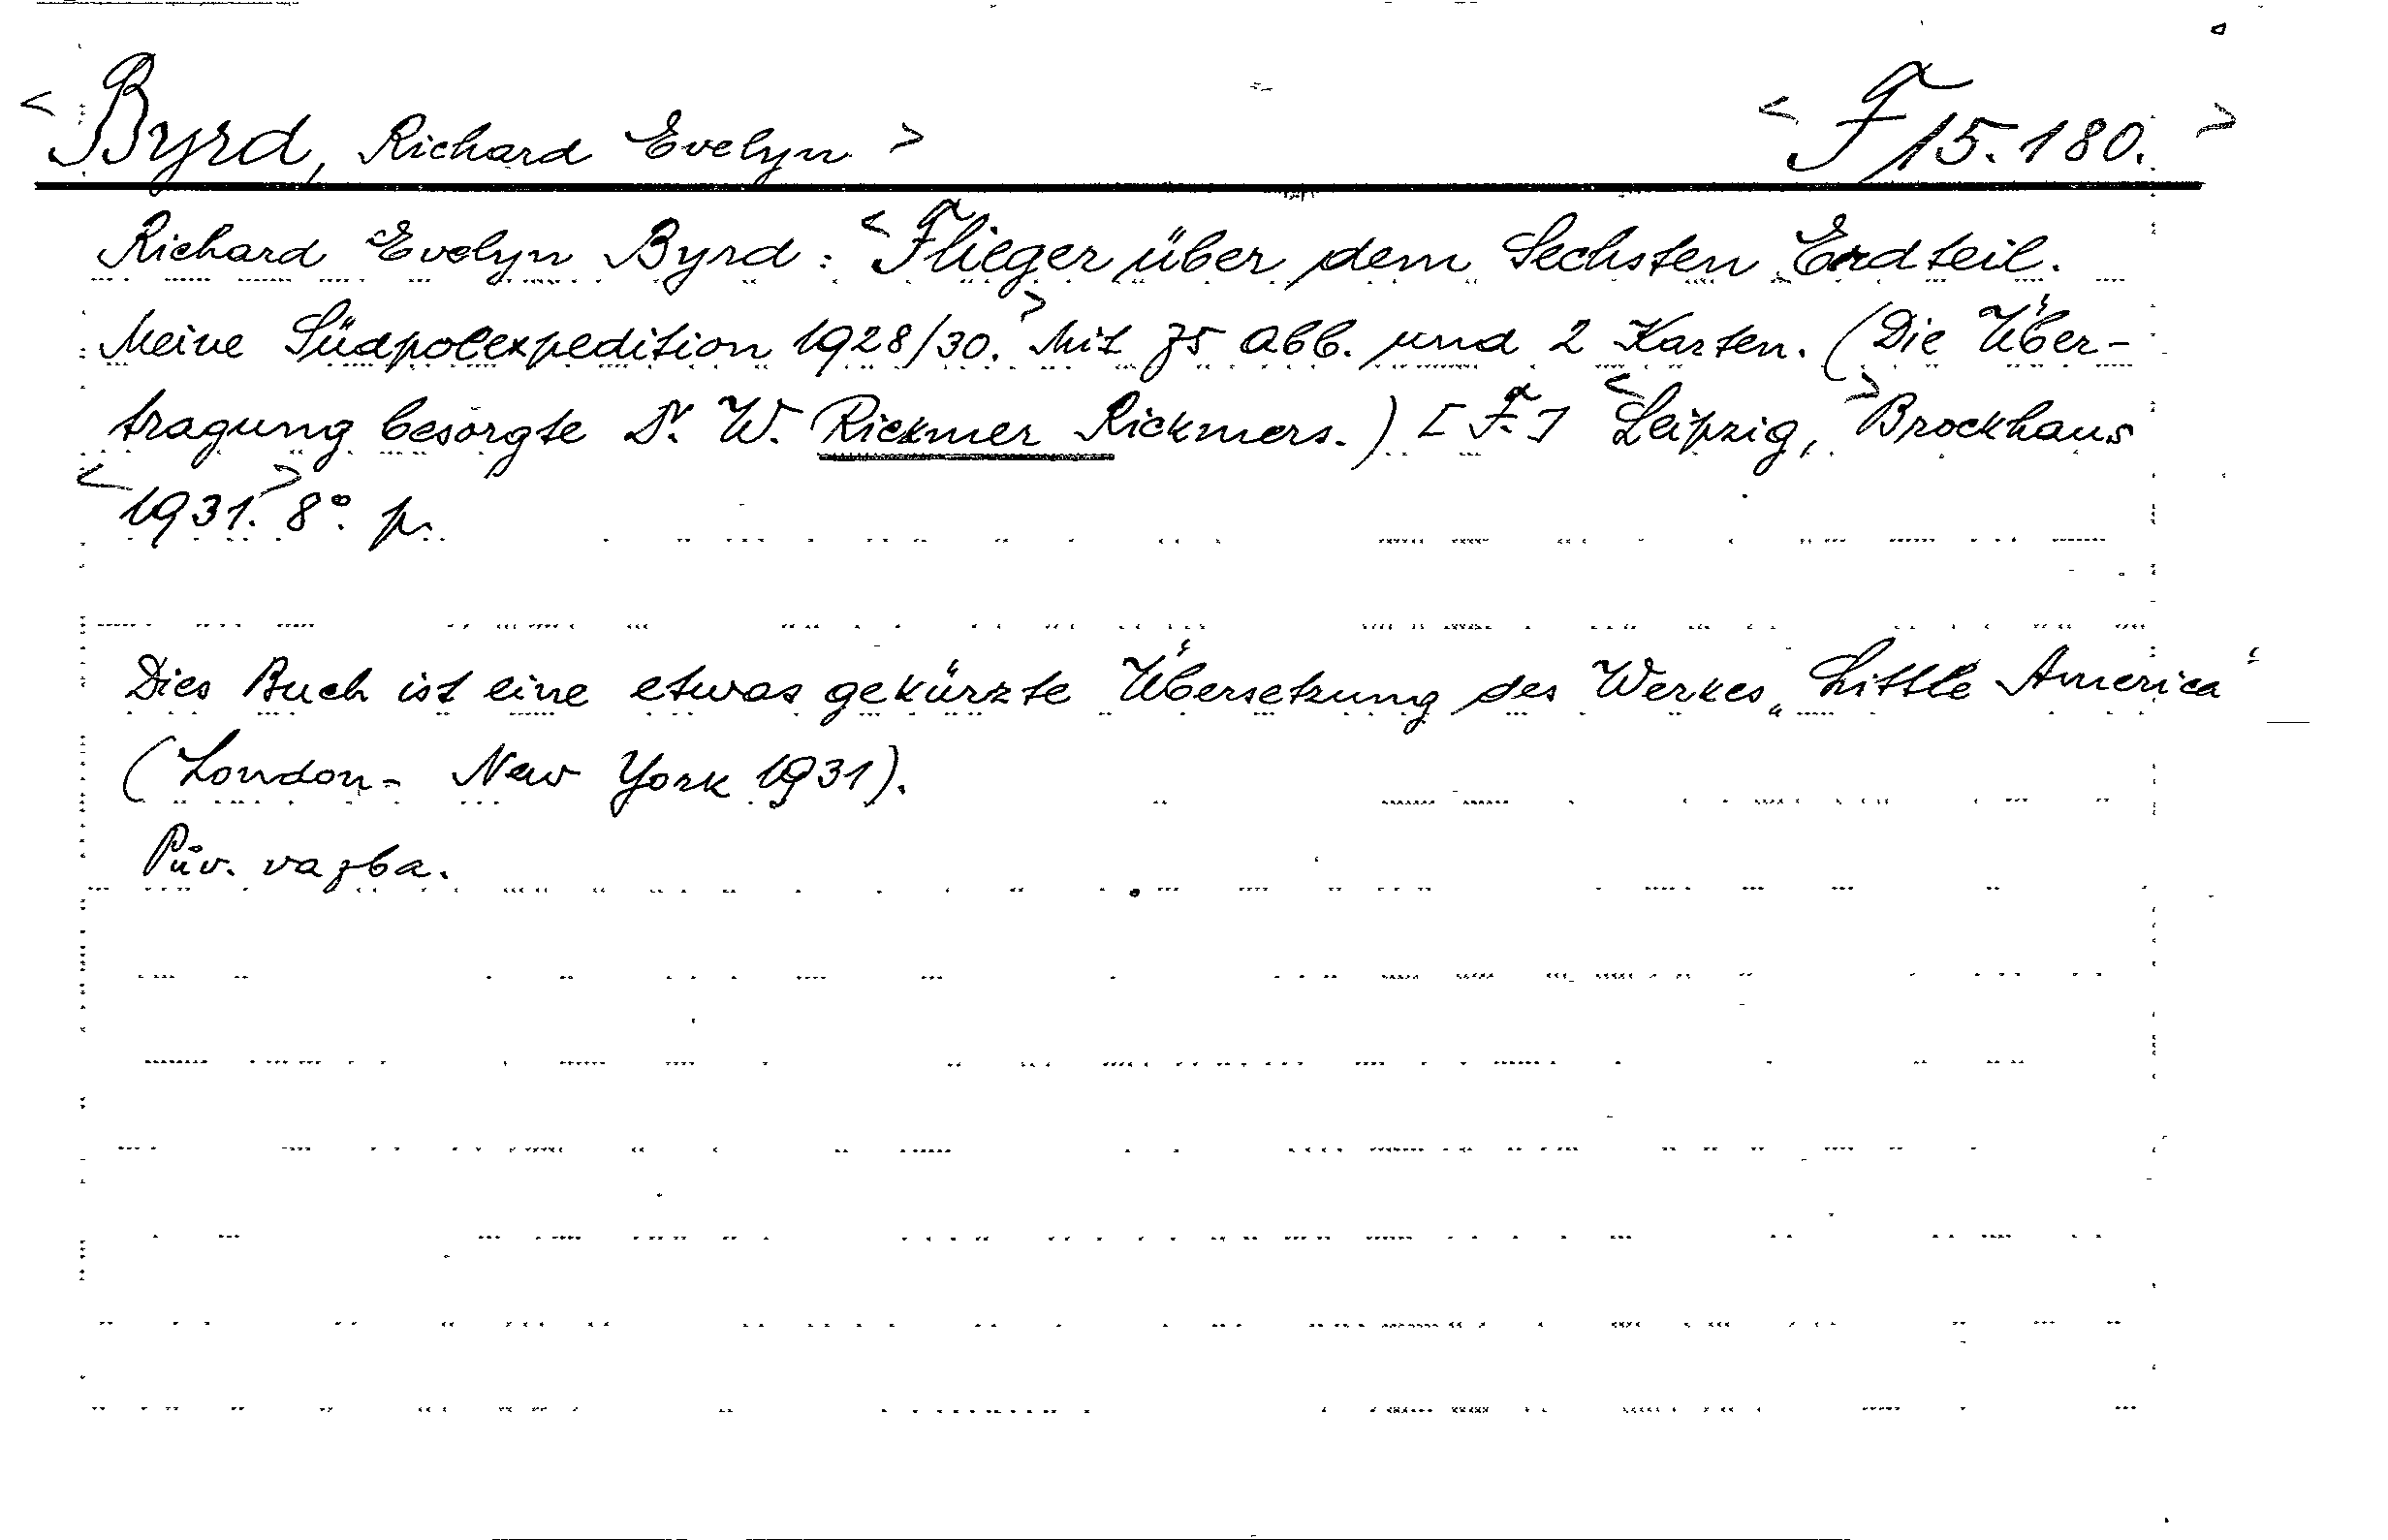 < Byrd, Richard Evelyn > < F 15.180. >
Richard Evelyn Byrd: < Flieger über dem Sechsten Erdteil.
Meine Südpolexpedition 1928/30. > Mit 75 Abb. und 2 Karten. (Die Über-
tragung besorgte Dr. W. Rickmer Rickmers.) [F.] < Leipzig, > Brockhaus
< 1931. > 8°. p.
Dies Buch ist eine etwas gekürzte Übersetzung des Werkes „Little America“
(London - New York 1931).
Pův. vazba.